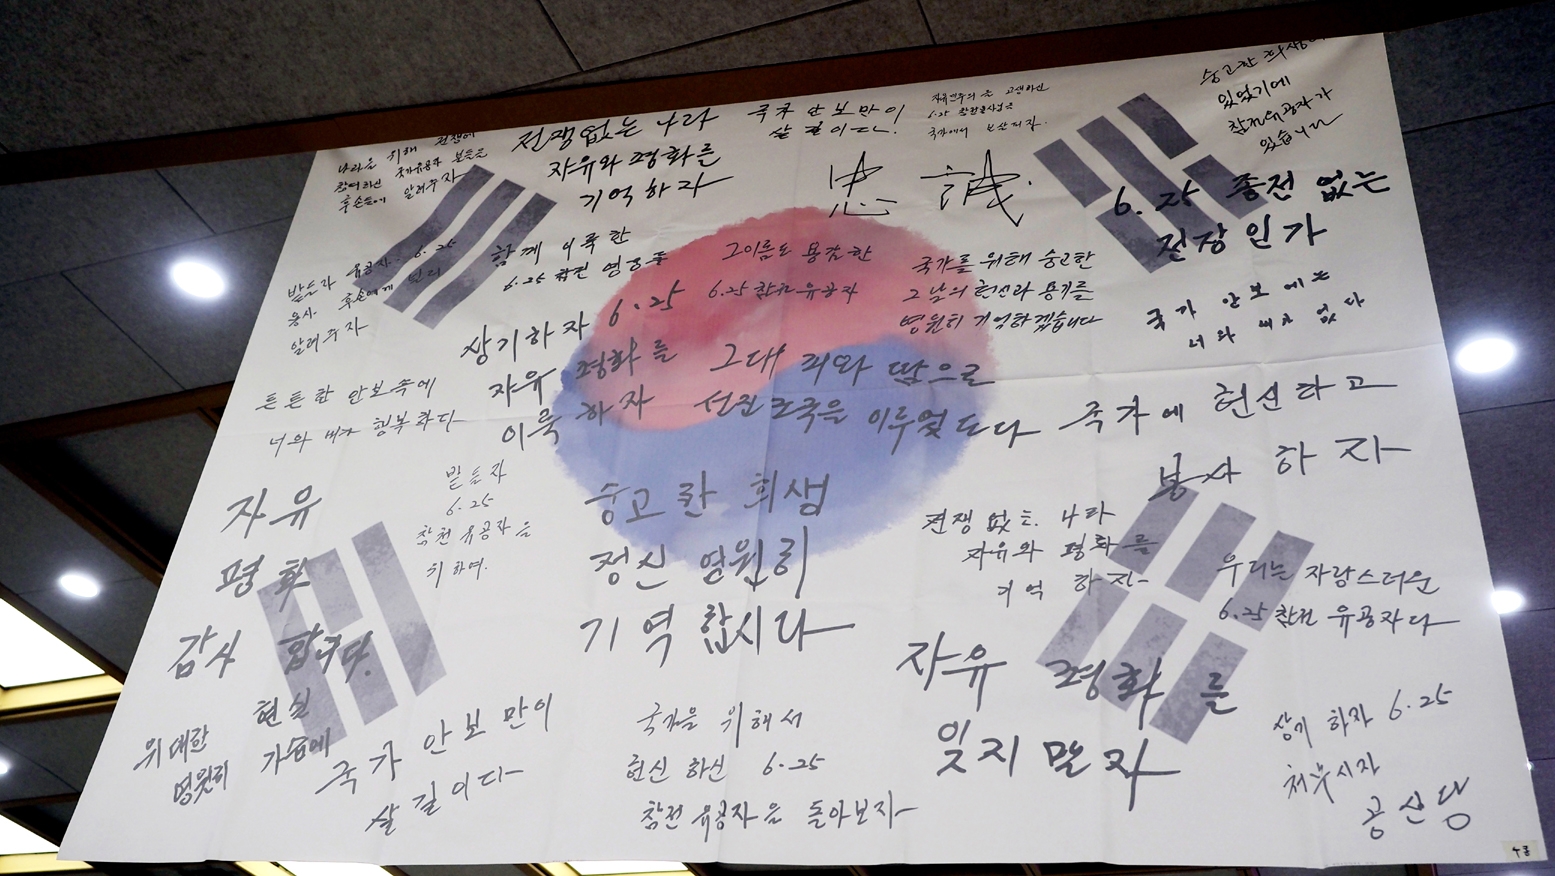 나라를 위해 전쟁에
참여하신 국가유공자 분들을
후손들에 알려주자
전쟁없는 나라
자유와 평화를
기억하자
국가안보만이
살길이다.
6.25 참전용사님을
국가에서 보살피자.
숭고한 희생이
있었기에
참전유공자가
있습니다
忠 誠.
6.25 종전 없는
전장인가
받들자 유공자. 6.25
용사. 후손에게 널리
알려주자
함께 이룩한
6.25 참전 영웅들
그이름도 용감한
6.25 참전 유공자
국가를 위해 숭고한
그날의 헌신과 용기를
영원히 기억하겠습니다
국가 안보에는
너와 내가 없다
상기하자 6.25
자유 평화를
이룩하자
그대 피와 땀으로
선진조국을 이루었도다
국가에 헌신하고
봉사하자
튼튼한 안보속에
너와 내가 행복하다
받들자
6.25
참전 유공자을
위하여.
자유
평화
감사 합니다.
숭고한 희생
정신 영원히
기억합시다
전쟁 없는. 나라
자유와 평화를
기억 하자
우리는 자랑스러운
6.25 참전 유공자다
자유 평화를
잊지말자
위대한 현실
영원히 가슴에
국가안보만이
살길이다
국가을 위해서
헌신 하신 6.25
참전 유공자을 돌아보자
상기 하자 6.25
처부시자
공산당